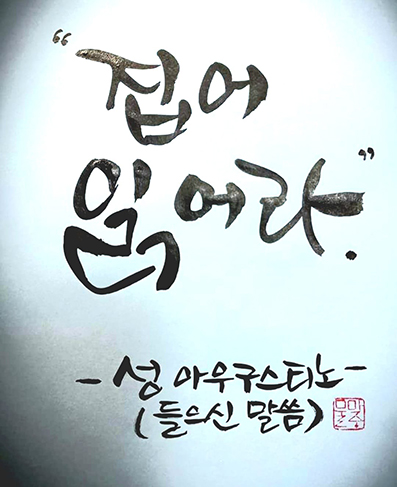 “집어
읽어라.”
- 성 아우구스티노 -
(들으신 말씀)